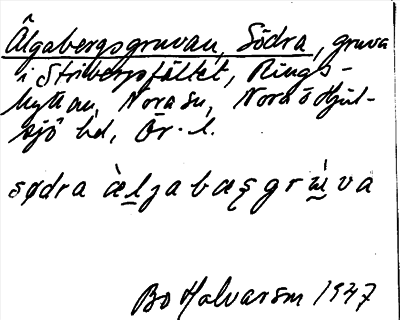 Älgabergsgruvan, Södra, gruva
i Stribergsfältet, Rings-
hyttan, Nora sn, Nora o Hjul-
sjö hd, Ör. l.
sødra àljabæșgrùva
Bo Halvarsm 1947